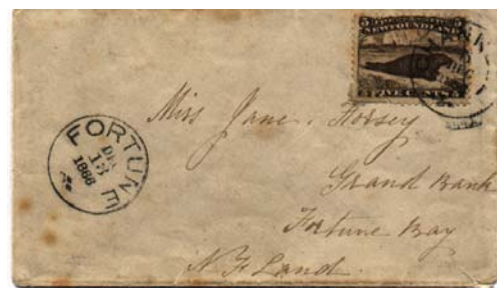 5 NEWFOUNDLAND 5
FIVE CENTS
FORTUNE
DE
13
1866
Miss Jane Forsey
Grand Bank
Fortune Bay
N F Land.